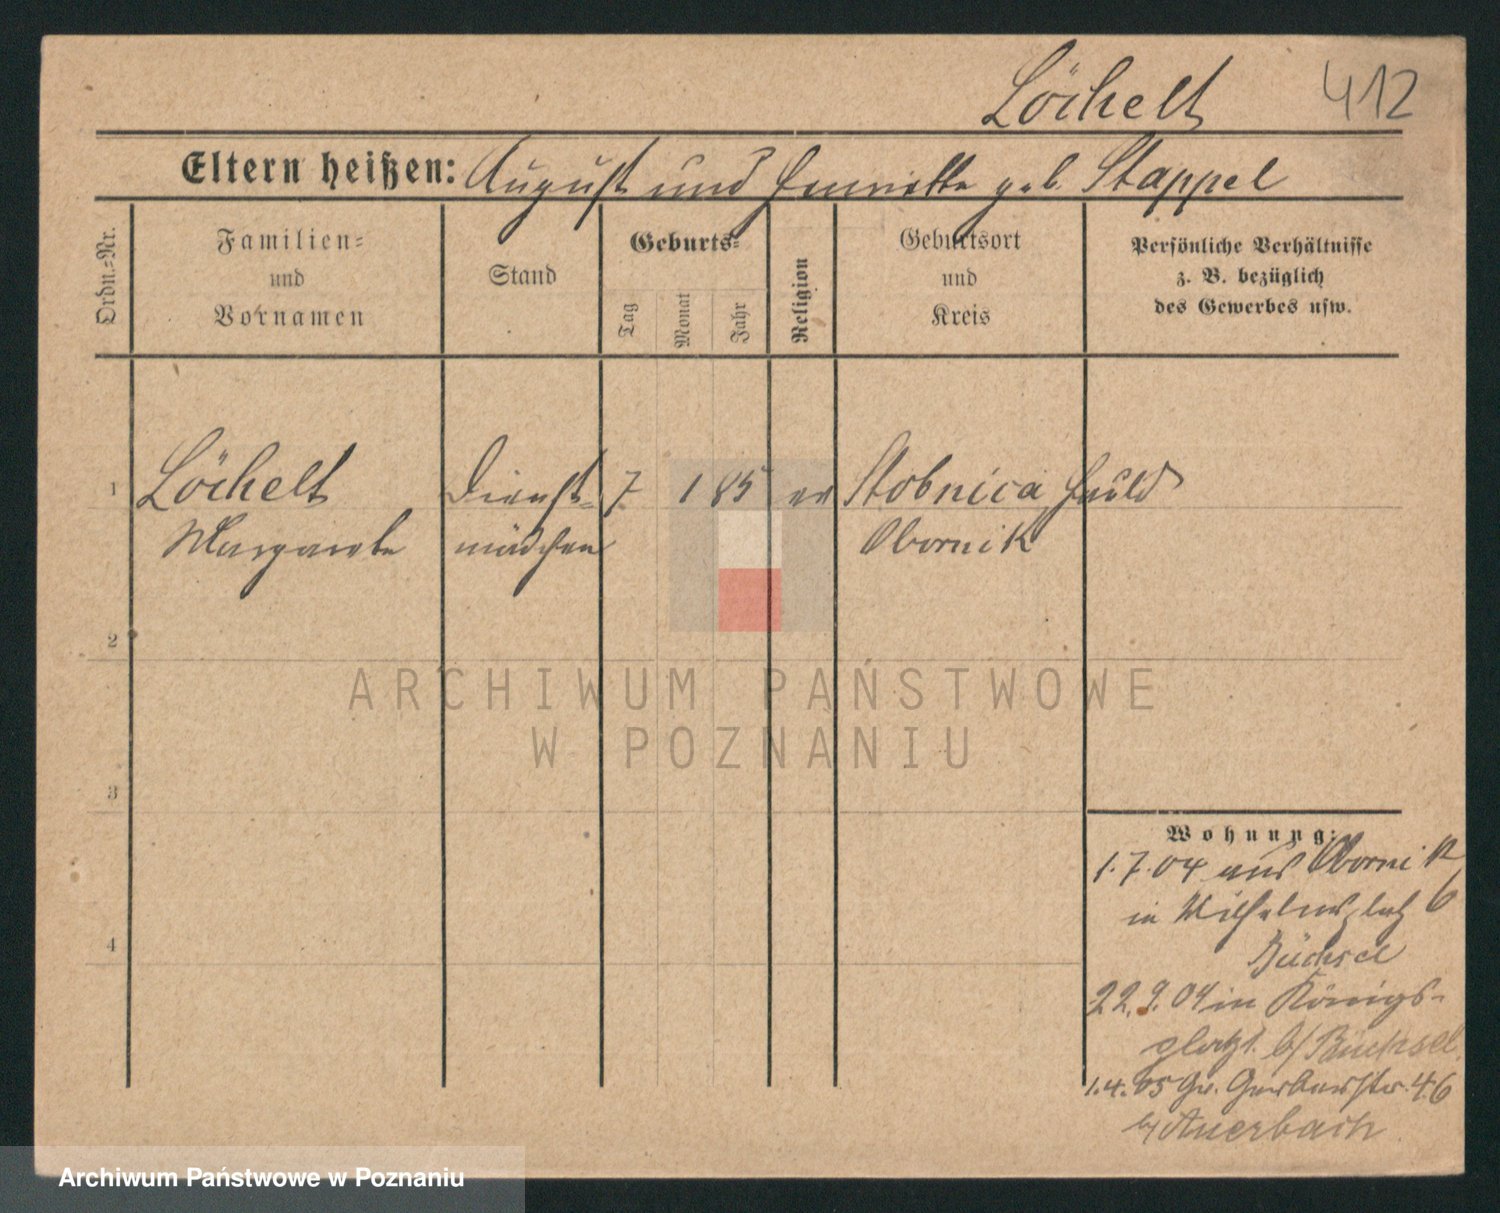 Löchelt
412
Eltern heißen: August und Henriette geb. Stappel
Ordn.-Nr.
Familien-
und
Vornamen
Stand
Geburts-
Tag
Monat
Jahr
Religion
Geburtsort
und
Kreis
Persönliche Verhältnisse
z. B. bezüglich
des Gewerbes usw.
1
Löchelt
Margarete
Dienst-
mädchen
7
1
85
ev
Stobnica Hauld
Obornik
2
3
4
Wohnung:
1.7.04 aus Obornik
in Wilhelmsplatz 6
Büchsel
22.9.04 in Königs-
platz 1. b/ Büchsel
1.4.05 Gr. Gerberstr. 46
b/ Auerbach
ARCHIWUM PAŃSTWOWE
W POZNANIU
Archiwum Państwowe w Poznaniu